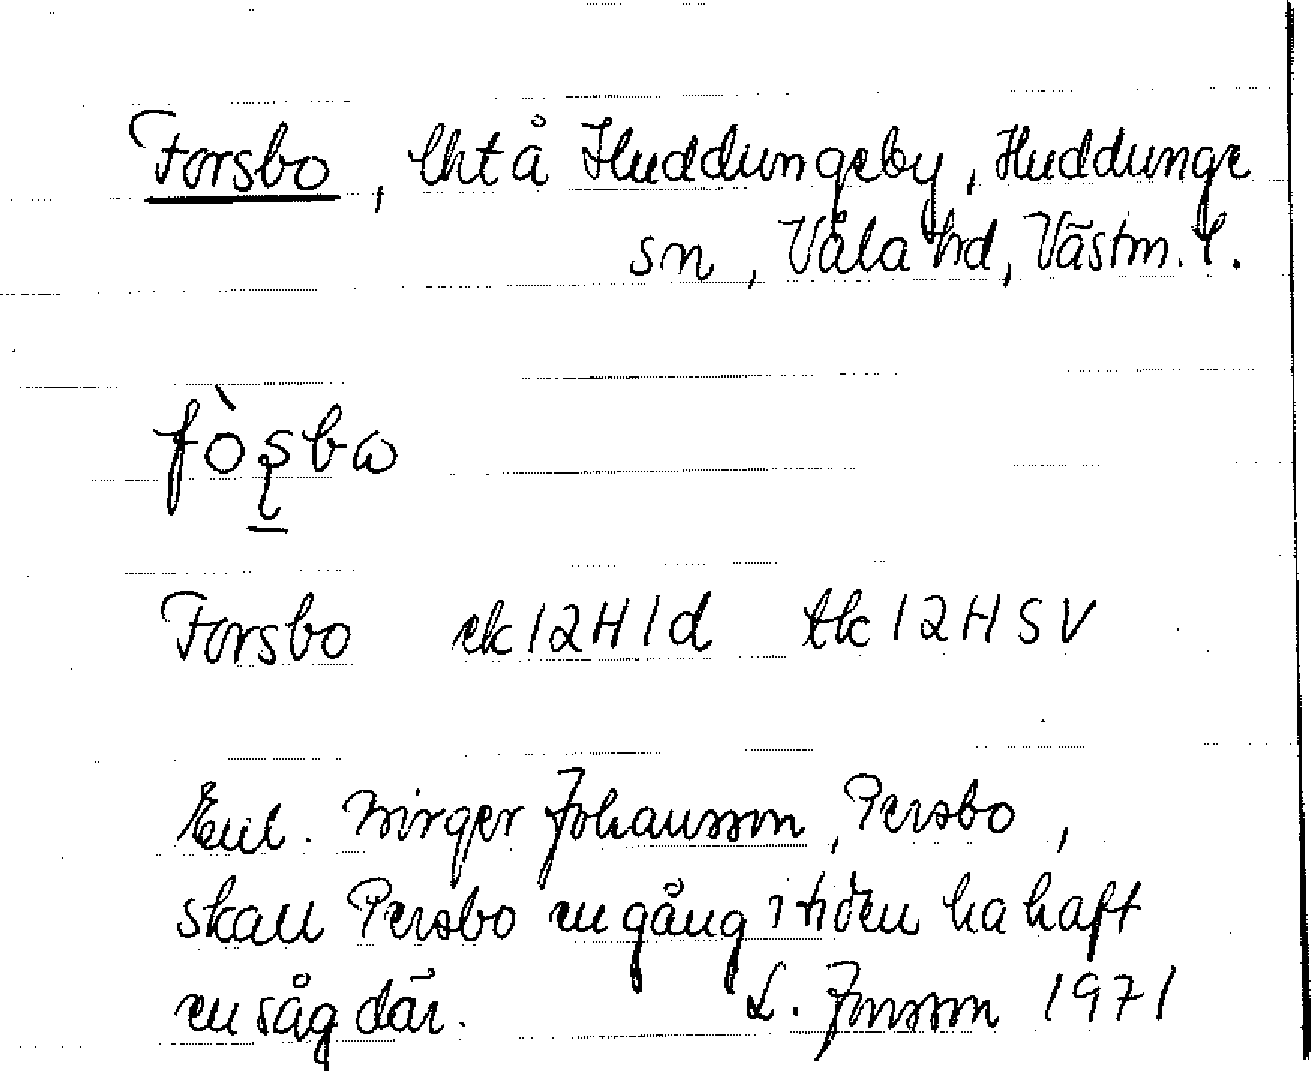 Forsbo, lht å Huddungeby, Huddunge
sn, Våla hd, Västm. l.
fòʂba
Forsbo ek 12H1d tk 12H SV
Enl. Birger Johansson, Persbo,
skall Persbo en gång i tiden ha haft
en såg där. L. Jonsson 1971